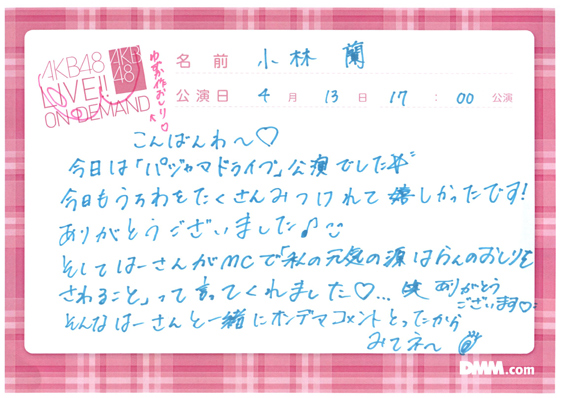 AKB48
LOVE!!
ON DEMAND
AKB
48
名前 小林 蘭
公演日 4月 13日 17:00 公演
こんばんわ〜♡
今日は「パジャマドライブ」公演でした
今日もうちわをたくさんみつけれて嬉しかったです!
ありがとうございました♪
そしてはーさんがMCで「私の元気の源はらんのおしりを
さわること」って言ってくれました♡…笑 ありがとう
ございます♡
そんなはーさんと一緒にオンデマコメントとったから
みてネ〜
DMM.com